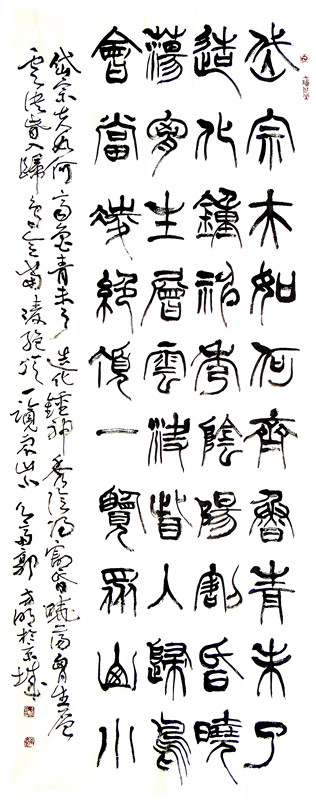 岱宗夫如何齊魯青未了
造化鍾神秀陰陽割昏曉
蕩胸生層雲決眥入歸鳥
會當凌絕頂一覽眾山小
岱宗夫如何齊魯青未了造化鍾神秀陰陽割昏曉蕩胸生層
雲決眥入歸鳥會當凌絕頂一覽眾山小郭明於京城